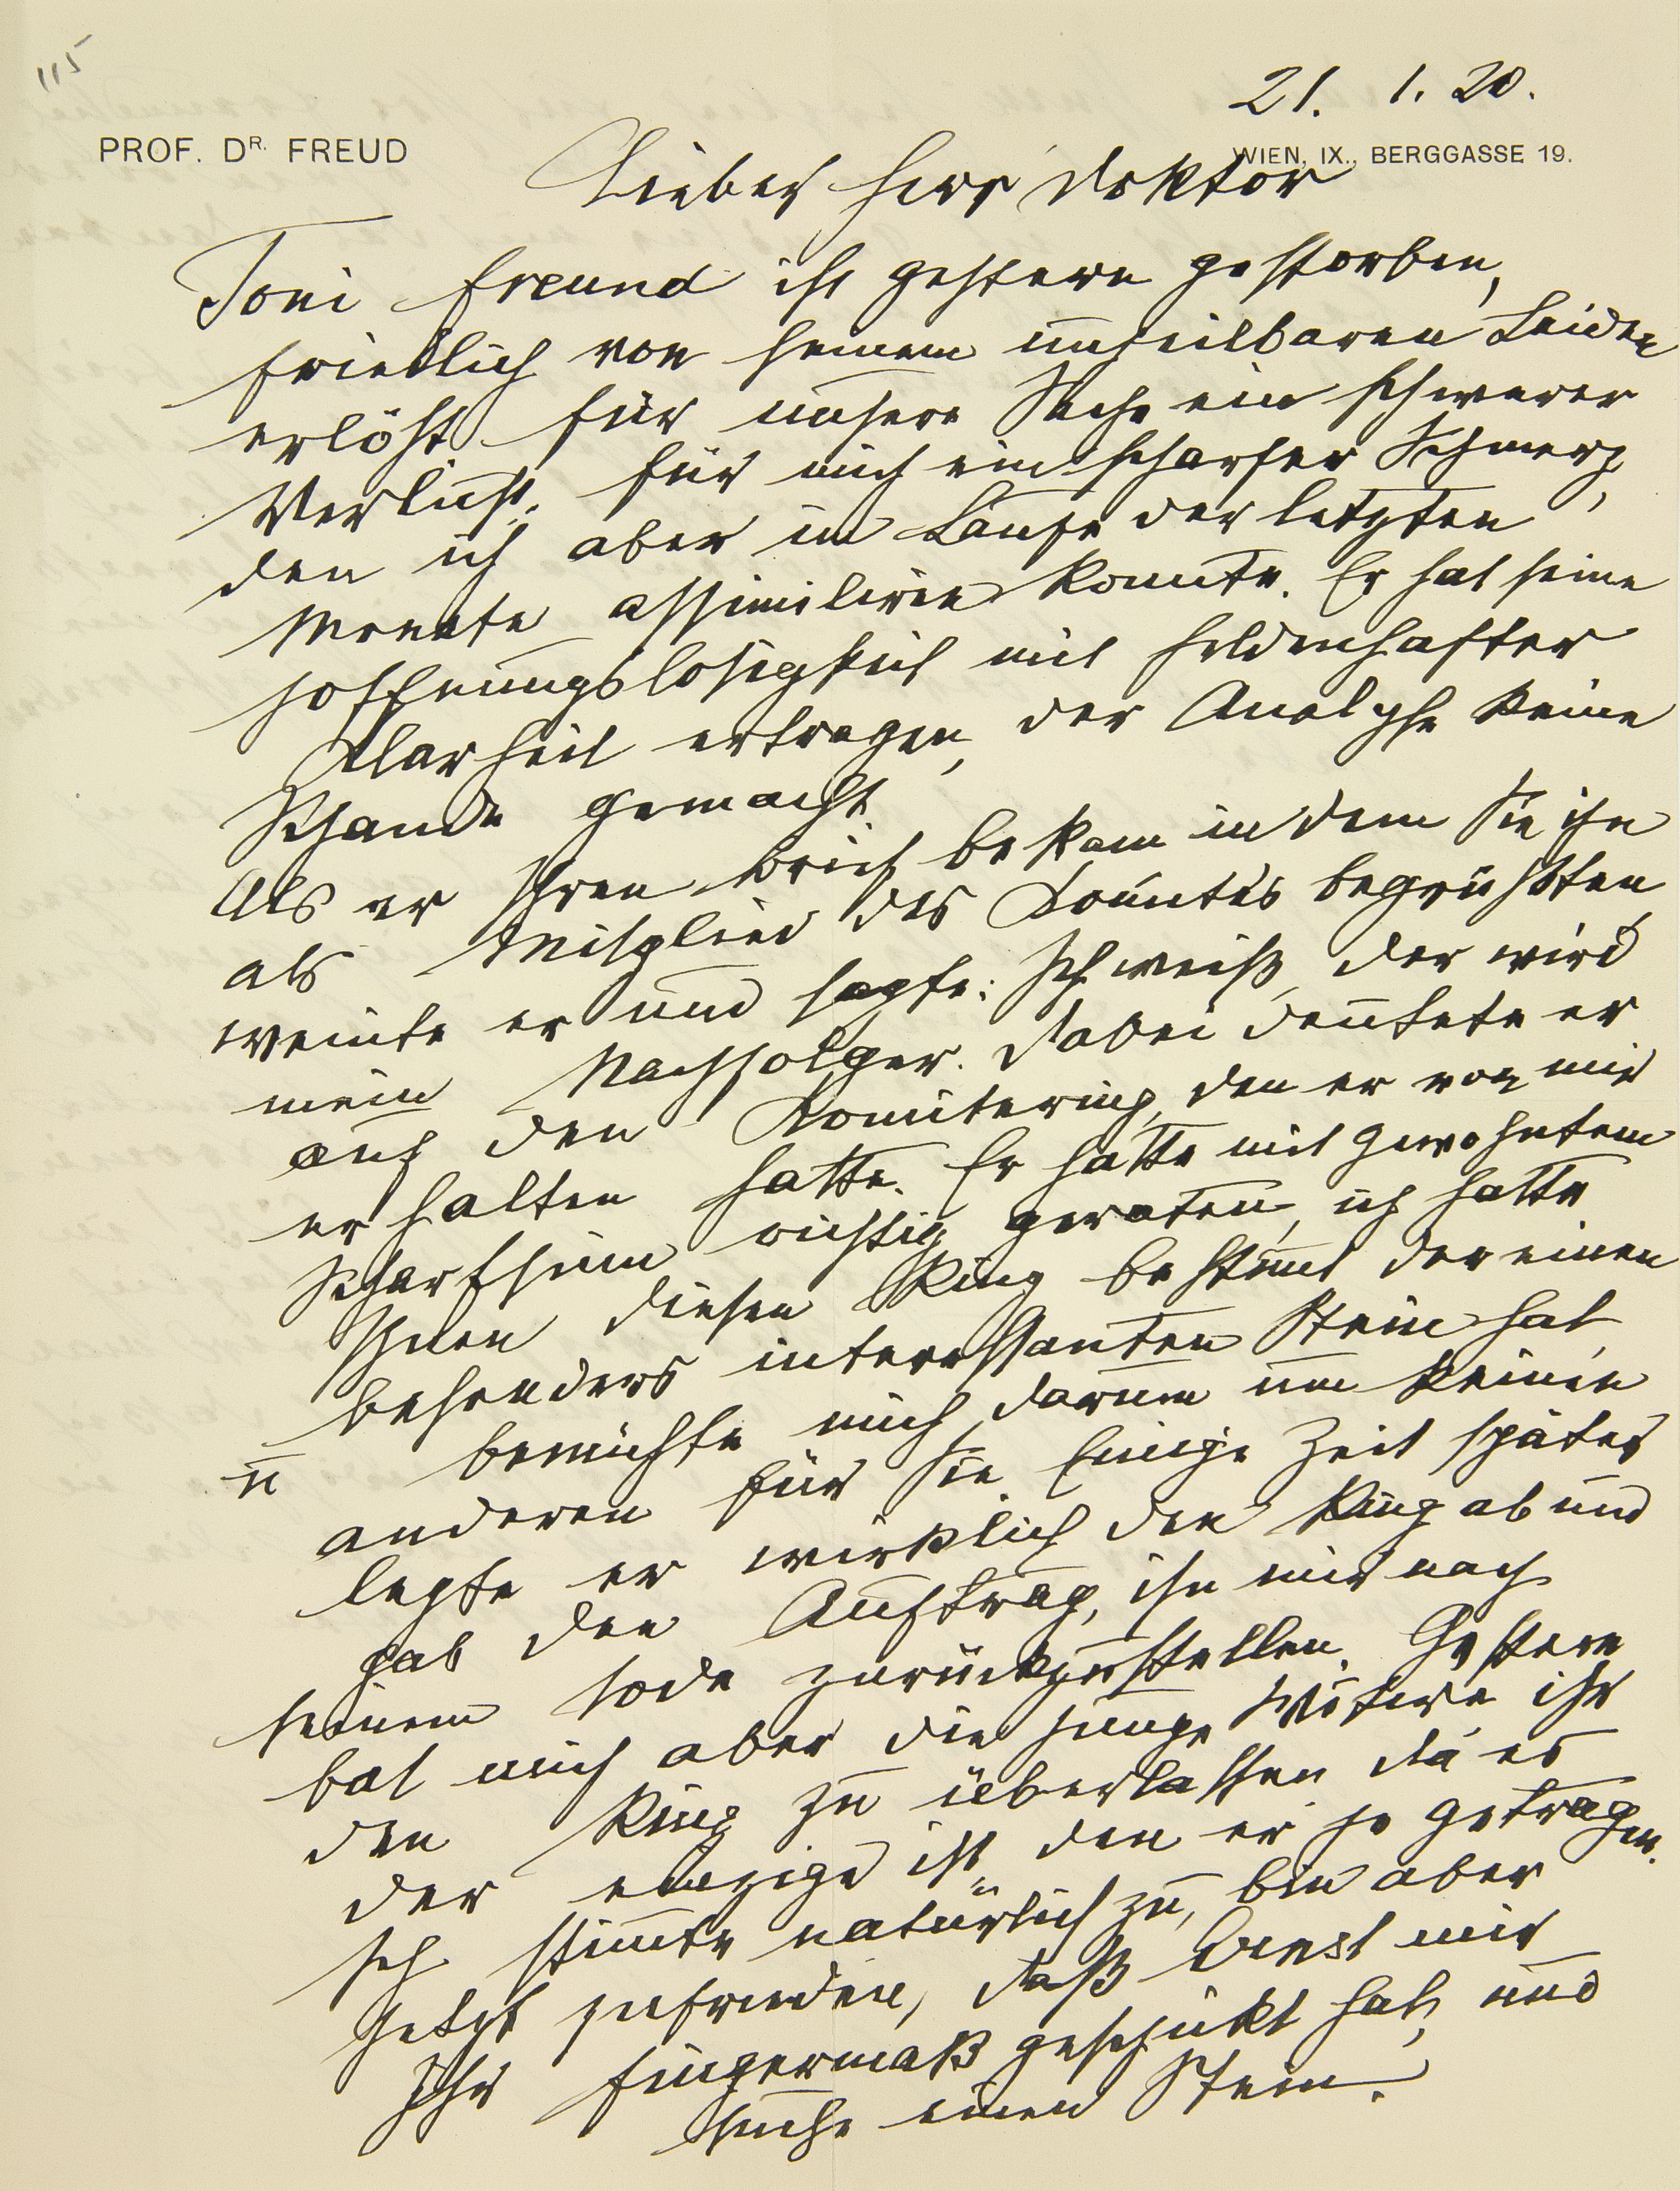 115
21. 1. 20.
PROF. DR. FREUD
WIEN, IX., BERGGASSE 19.
Lieber Herr Doktor
Toni Freund ist gestern gestorben,
friedlich von seinem unheilbaren Leiden
erlöst. Für unsere Sache ein schwerer
Verlust, für mich ein scharfer Schmerz,
den ich aber im Laufe der letzten
Monate assimiliren konnte. Er hat seine
Hoffnungslosigkeit mit heldenhafter
Klarheit ertragen, der Analyse keine
Schande gemacht.
Als er Ihren Brief bekam in dem Sie ihn
als Mitglied des Komités begrüßten,
weinte er und sagte: Ich weiß, der wird
mein Nachfolger. Dabei deutete er
auf den Komitering, den er von mir
erhalten hatte. Er hatte mit gewohntem
Scharfsinn richtig geraten, ich hatte
Ihnen diesen Ring bestimmt der einen
besonders interessanten Stein hat,
u bemühte mich darum um keinen
anderen für Sie. Einige Zeit später
legte er wirklich den Ring ab und
gab den Auftrag, ihn mir nach
seinem Tode zurückzustellen. Gestern
bat mich aber die junge Witwe ihr
den Ring zu überlassen da es
der einzige ist, den er je getragen.
Ich stimmte natürlich zu, bin aber
jetzt zufrieden, daß Ernst mir
Ihr Fingermaß geschickt hat, und
suche einen Stein.